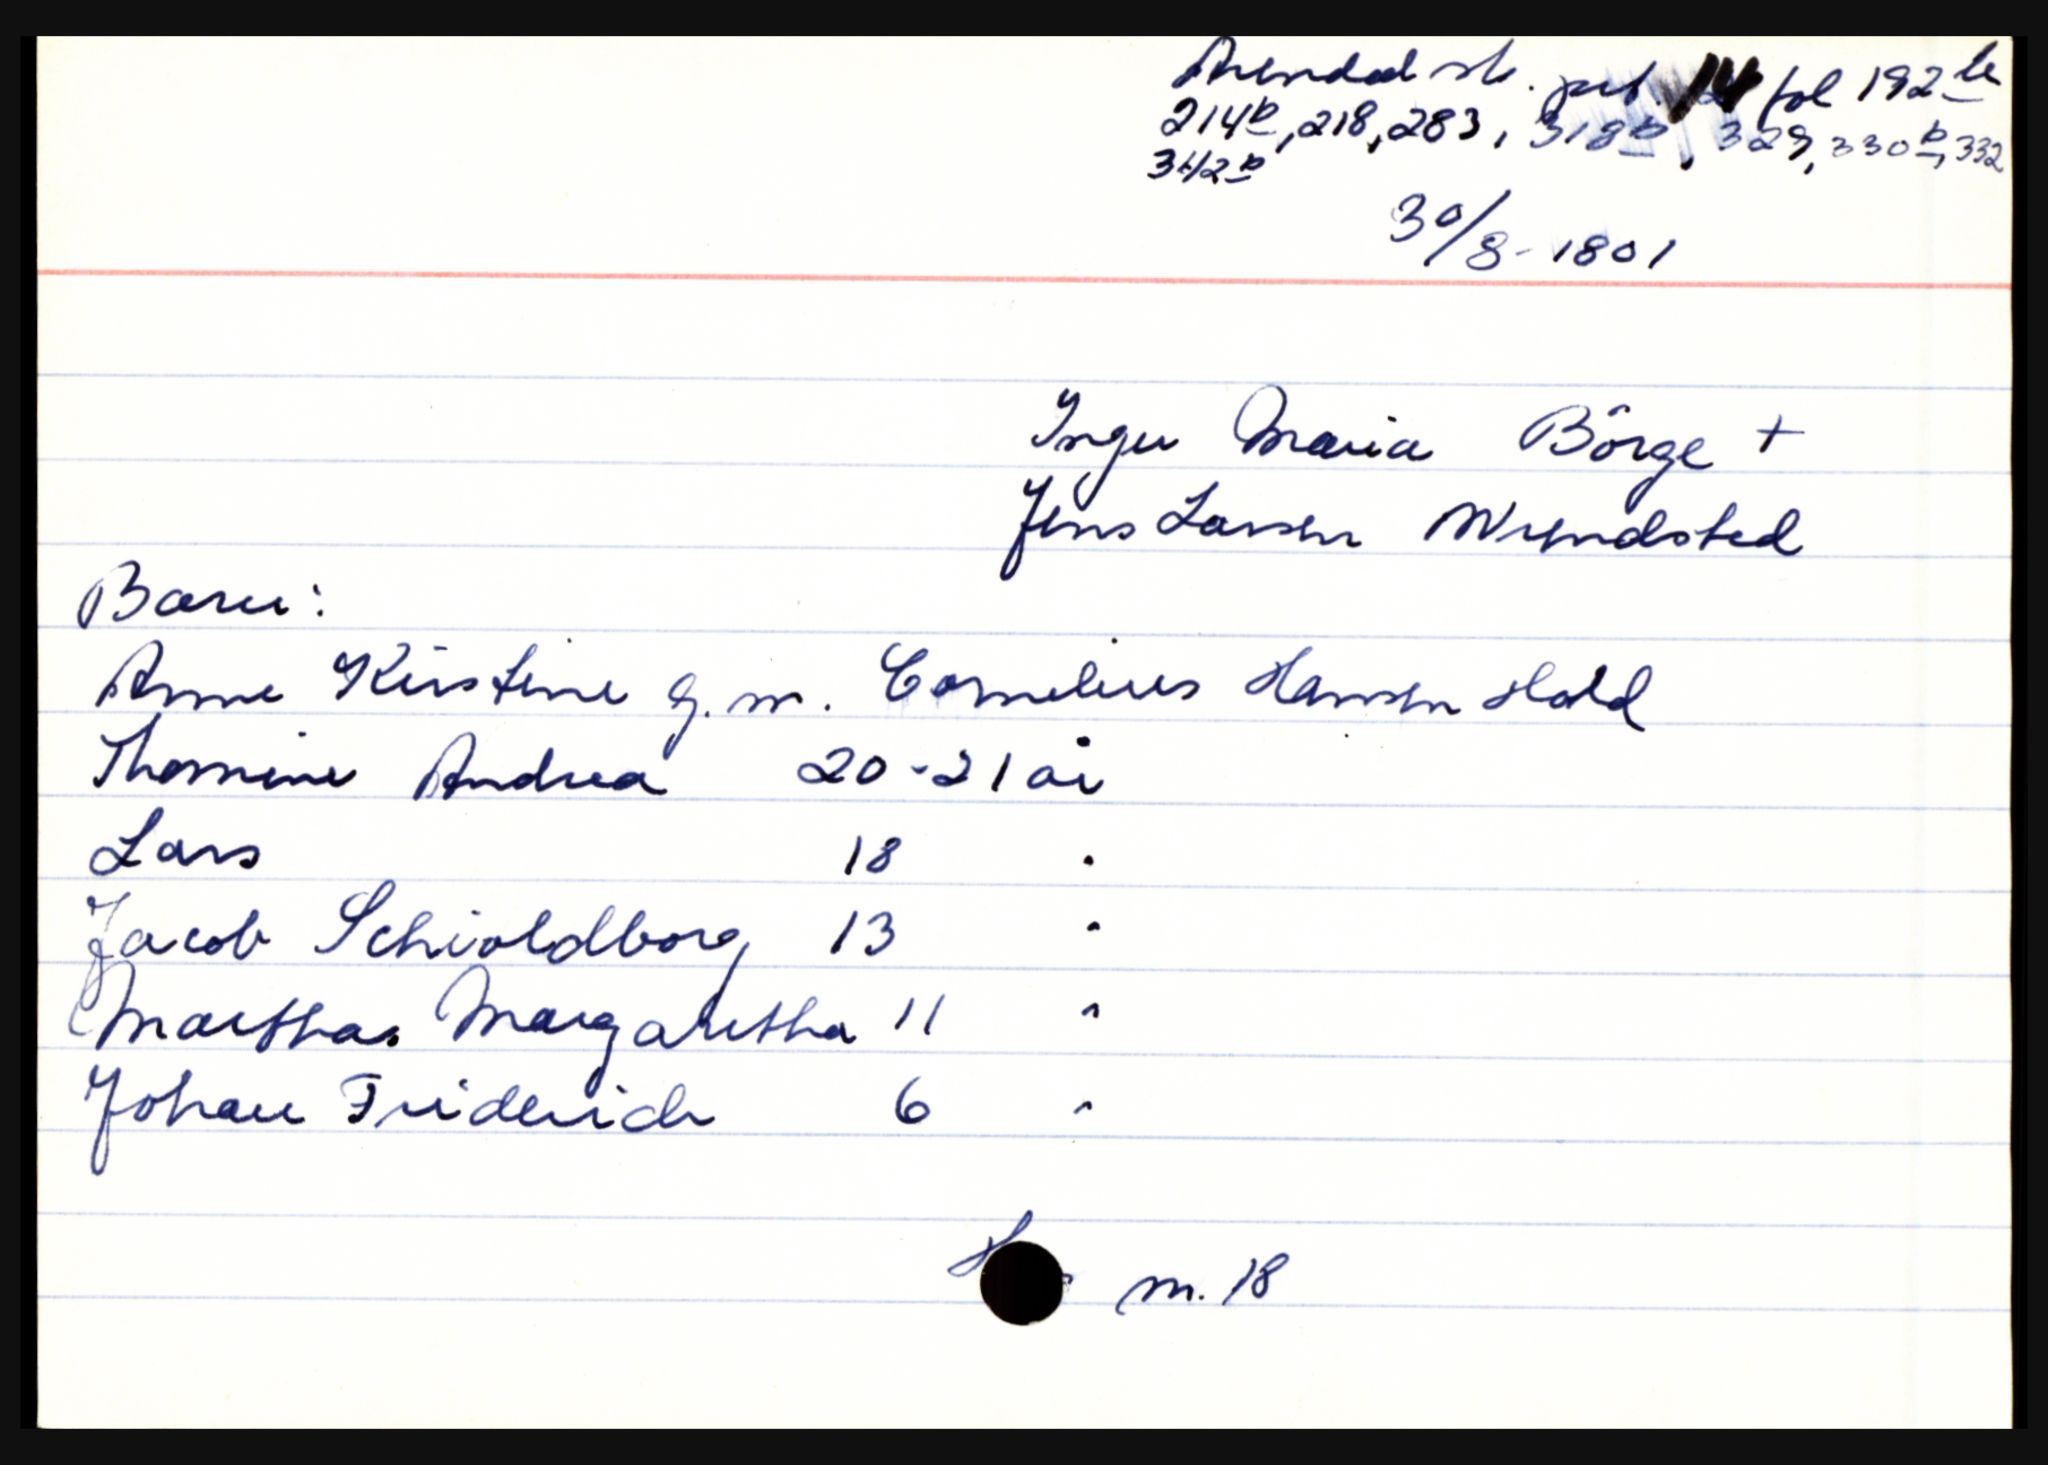 Arendal sk. prt. 14 fol 192 b
214 b, 218, 283, 318 b, 329, 330 b, 332
342 b
30/8-1801
Inger Maria Börge +
Jens Larsen Wrendsted
Barn:
Anne Kirstine g.m. Cornelius Hansen Hold
Thomine Andrea 20-21 år
Lars 18 "
Jacob Schioldborg 13 "
Marthas Margaretha 11 "
Johan Friderich 6 "
m. 18